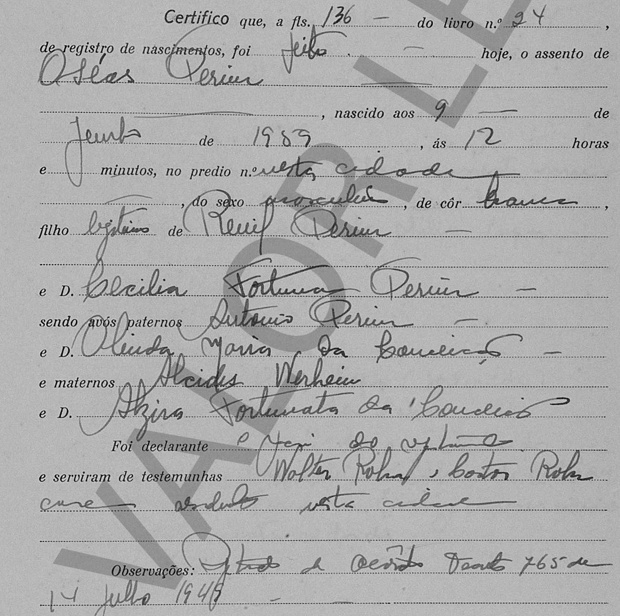 Certifico que, a fls. 136 — do livro n.º 24,
de registro de nascimentos, foi feito — hoje, o assento de
Oséas Perim
, nascido aos 9 — de
Junho de 1959, ás 12 horas
e minutos, no predio n.º nesta cidade
, do sexo masculino, de côr branca,
filho legítimo de Renil Perim —
e D. Cecilia Fortuna Perim —
sendo avós paternos Antonio Perim —
e D. Olinda Maria da Conceição —
e maternos Alcides Werheim
e D. Alzira Fortunata da Conceição
Foi declarante o pai do
e serviram de testemunhas Walter Rohr, Rohr
nesta cidade
Observações: de acôrdo 765 de
14 julho 1949
VALOR